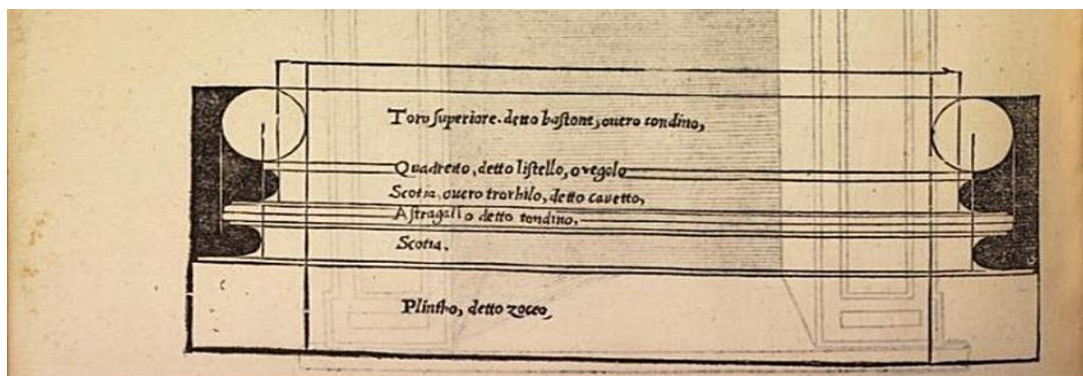 Toro superiore. detto bastone, ouero tondino,
Quadretto, detto listello, o regolo
Scotia, ouero trochilo, detto cauetto,
Astragallo detto tondino.
Scotia.
Plintho, detto zocco,